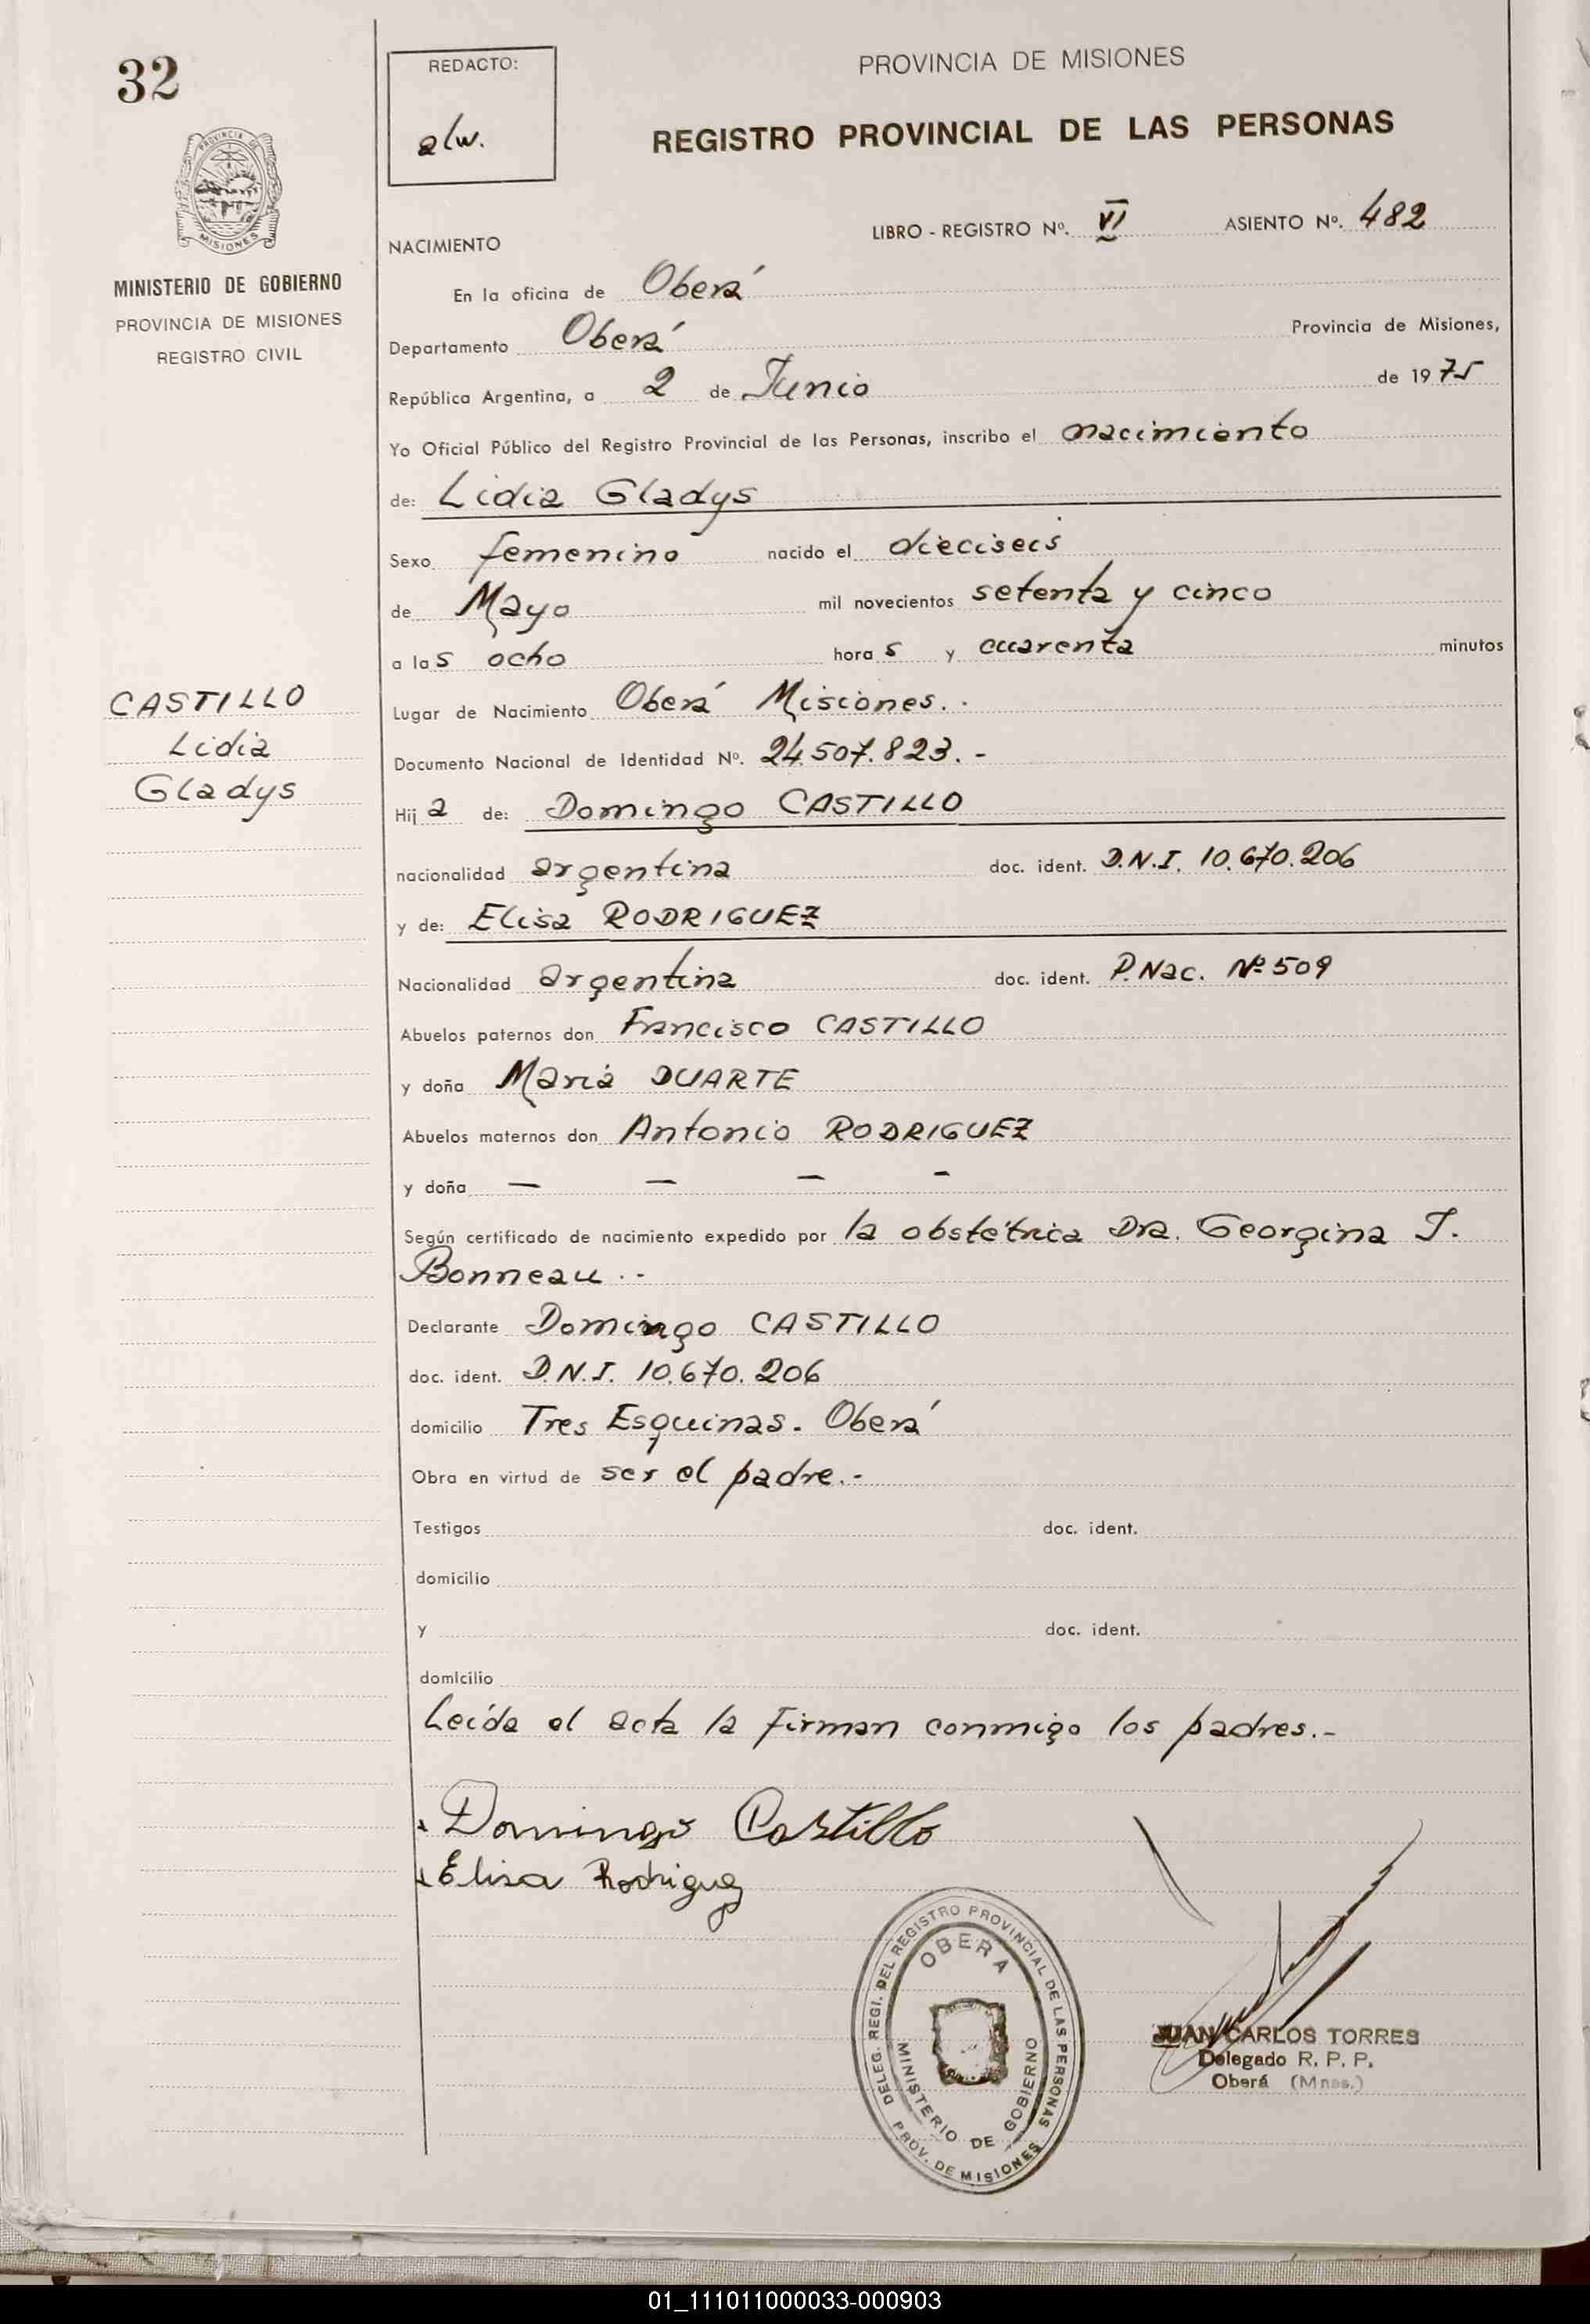 32
REDACTO:
alw.
PROVINCIA DE MISIONES
REGISTRO PROVINCIAL DE LAS PERSONAS
PROVINCIA DE
MISIONES
MINISTERIO DE GOBIERNO
PROVINCIA DE MISIONES
REGISTRO CIVIL
LIBRO - REGISTRO Nº. VI ASIENTO Nº. 482
NACIMIENTO
En la oficina de Oberá
Departamento Oberá Provincia de Misiones,
República Argentina, a 2 de Junio de 1975
Yo Oficial Público del Registro Provincial de las Personas, inscribo el nacimiento
de: Lidia Gladys
Sexo femenino nacido el dieciseis
de Mayo mil novecientos setenta y cinco
a las ocho horas y cuarenta minutos
CASTILLO
Lidia
Gladys
Lugar de Nacimiento Oberá Misiones.-
Documento Nacional de Identidad Nº. 24.507.823.-
Hija de: Domingo CASTILLO
nacionalidad argentina doc. ident. D.N.I. 10.670.206
y de: Elisa RODRIGUEZ
Nacionalidad argentina doc. ident. P.Nac. Nº 509
Abuelos paternos don Francisco CASTILLO
y doña María DUARTE
Abuelos maternos don Antonio RODRIGUEZ
y doña — — — -
Según certificado de nacimiento expedido por la obstétrica Dra. Georgina J.
Bonneau.-
Declarante Domingo CASTILLO
doc. ident. D.N.I. 10.670.206
domicilio Tres Esquinas. Oberá
Obra en virtud de ser el padre.-
Testigos doc. ident.
domicilio
y doc. ident.
domicilio
Leída el acta la firman conmigo los padres.-
Domingo Castillo
Elisa Rodriguez
DELEG. REGI. DEL REGISTRO PROVINCIAL DE LAS PERSONAS
OBERA
MINISTERIO DE GOBIERNO
PROV. DE MISIONES
JUAN CARLOS TORRES
Delegado R. P. P.
Oberá (Mnes.)
01_111011000033-000903